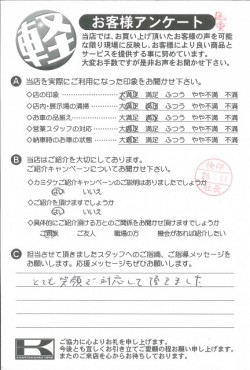 軽
お客様アンケート
当店では、お買い上げ頂いたお客様の声を可能
な限り現場に反映し、お客様により良い商品と
サービスを提供する事に努めています。
大変お手数ですが是非お声をお聞かせ下さい。
A 当店を実際にご利用になった印象をお聞かせ下さい。
◇店の印象 大満足 満足 ふつう やや不満 不満
◇店内・展示場の清掃 大満足 満足 ふつう やや不満 不満
◇お車の品揃え 大満足 満足 ふつう やや不満 不満
◇営業スタッフの対応 大満足 満足 ふつう やや不満 不満
◇納車時のお車の状態 大満足 満足 ふつう やや不満 不満
B 当店はご紹介を大切にしております。
ご紹介キャンペーンについてお聞かせ下さい。
◇カミタケご紹介キャンペーンのご説明はありましたでしょうか
はい いいえ
◇ご紹介を頂けますでしょうか
はい いいえ
◇具体的にご紹介頂ける方とのご関係をお聞かせ頂けますでしょうか
ご家族 ご友人 職場の方 機会があれば紹介したい
C 担当させて頂きましたスタッフへのご指摘、ご指導メッセージを
お願いします。応援メッセージもぜひお願いします。
とても笑顔で対応して頂きました
K
ご協力に心よりお礼を申し上げます。
今後とも宜しくお引き立てご愛顧の程お願い申し上げます。
またのご来店を心からお待ちしております。